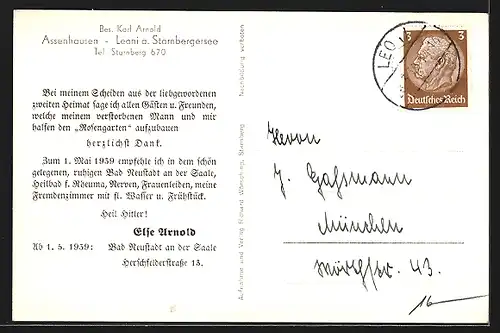 Bes. Karl Arnold
Assenhausen - Leoni a. Starnbergersee
Tel. Starnberg 670
Bei meinem Scheiden aus der liebgewordenen
zweiten Heimat sage ich allen Gästen u. Freunden,
welche meinem verstorbenen Mann und mir
halfen den „Rosengarten" aufzubauen
herzlichst Dank.
Zum 1. Mai 1939 empfehle ich in dem schön
gelegenen, ruhigen Bad Neustadt an der Saale,
Heilbad f. Rheuma, Nerven, Frauenleiden, meine
Fremdenzimmer mit fl. Wasser u. Frühstück.
Heil Hitler!
Else Arnold
Ab 1. 5. 1939: Bad Neustadt an der Saale
Herschfelderstraße 13.
Nachbildung verboten
Aufnahme und Verlag Starnberg
LEONI
3 3
Deutsches Reich
Herrn
J. Gassmann
München
Wörthstr. 43.
16